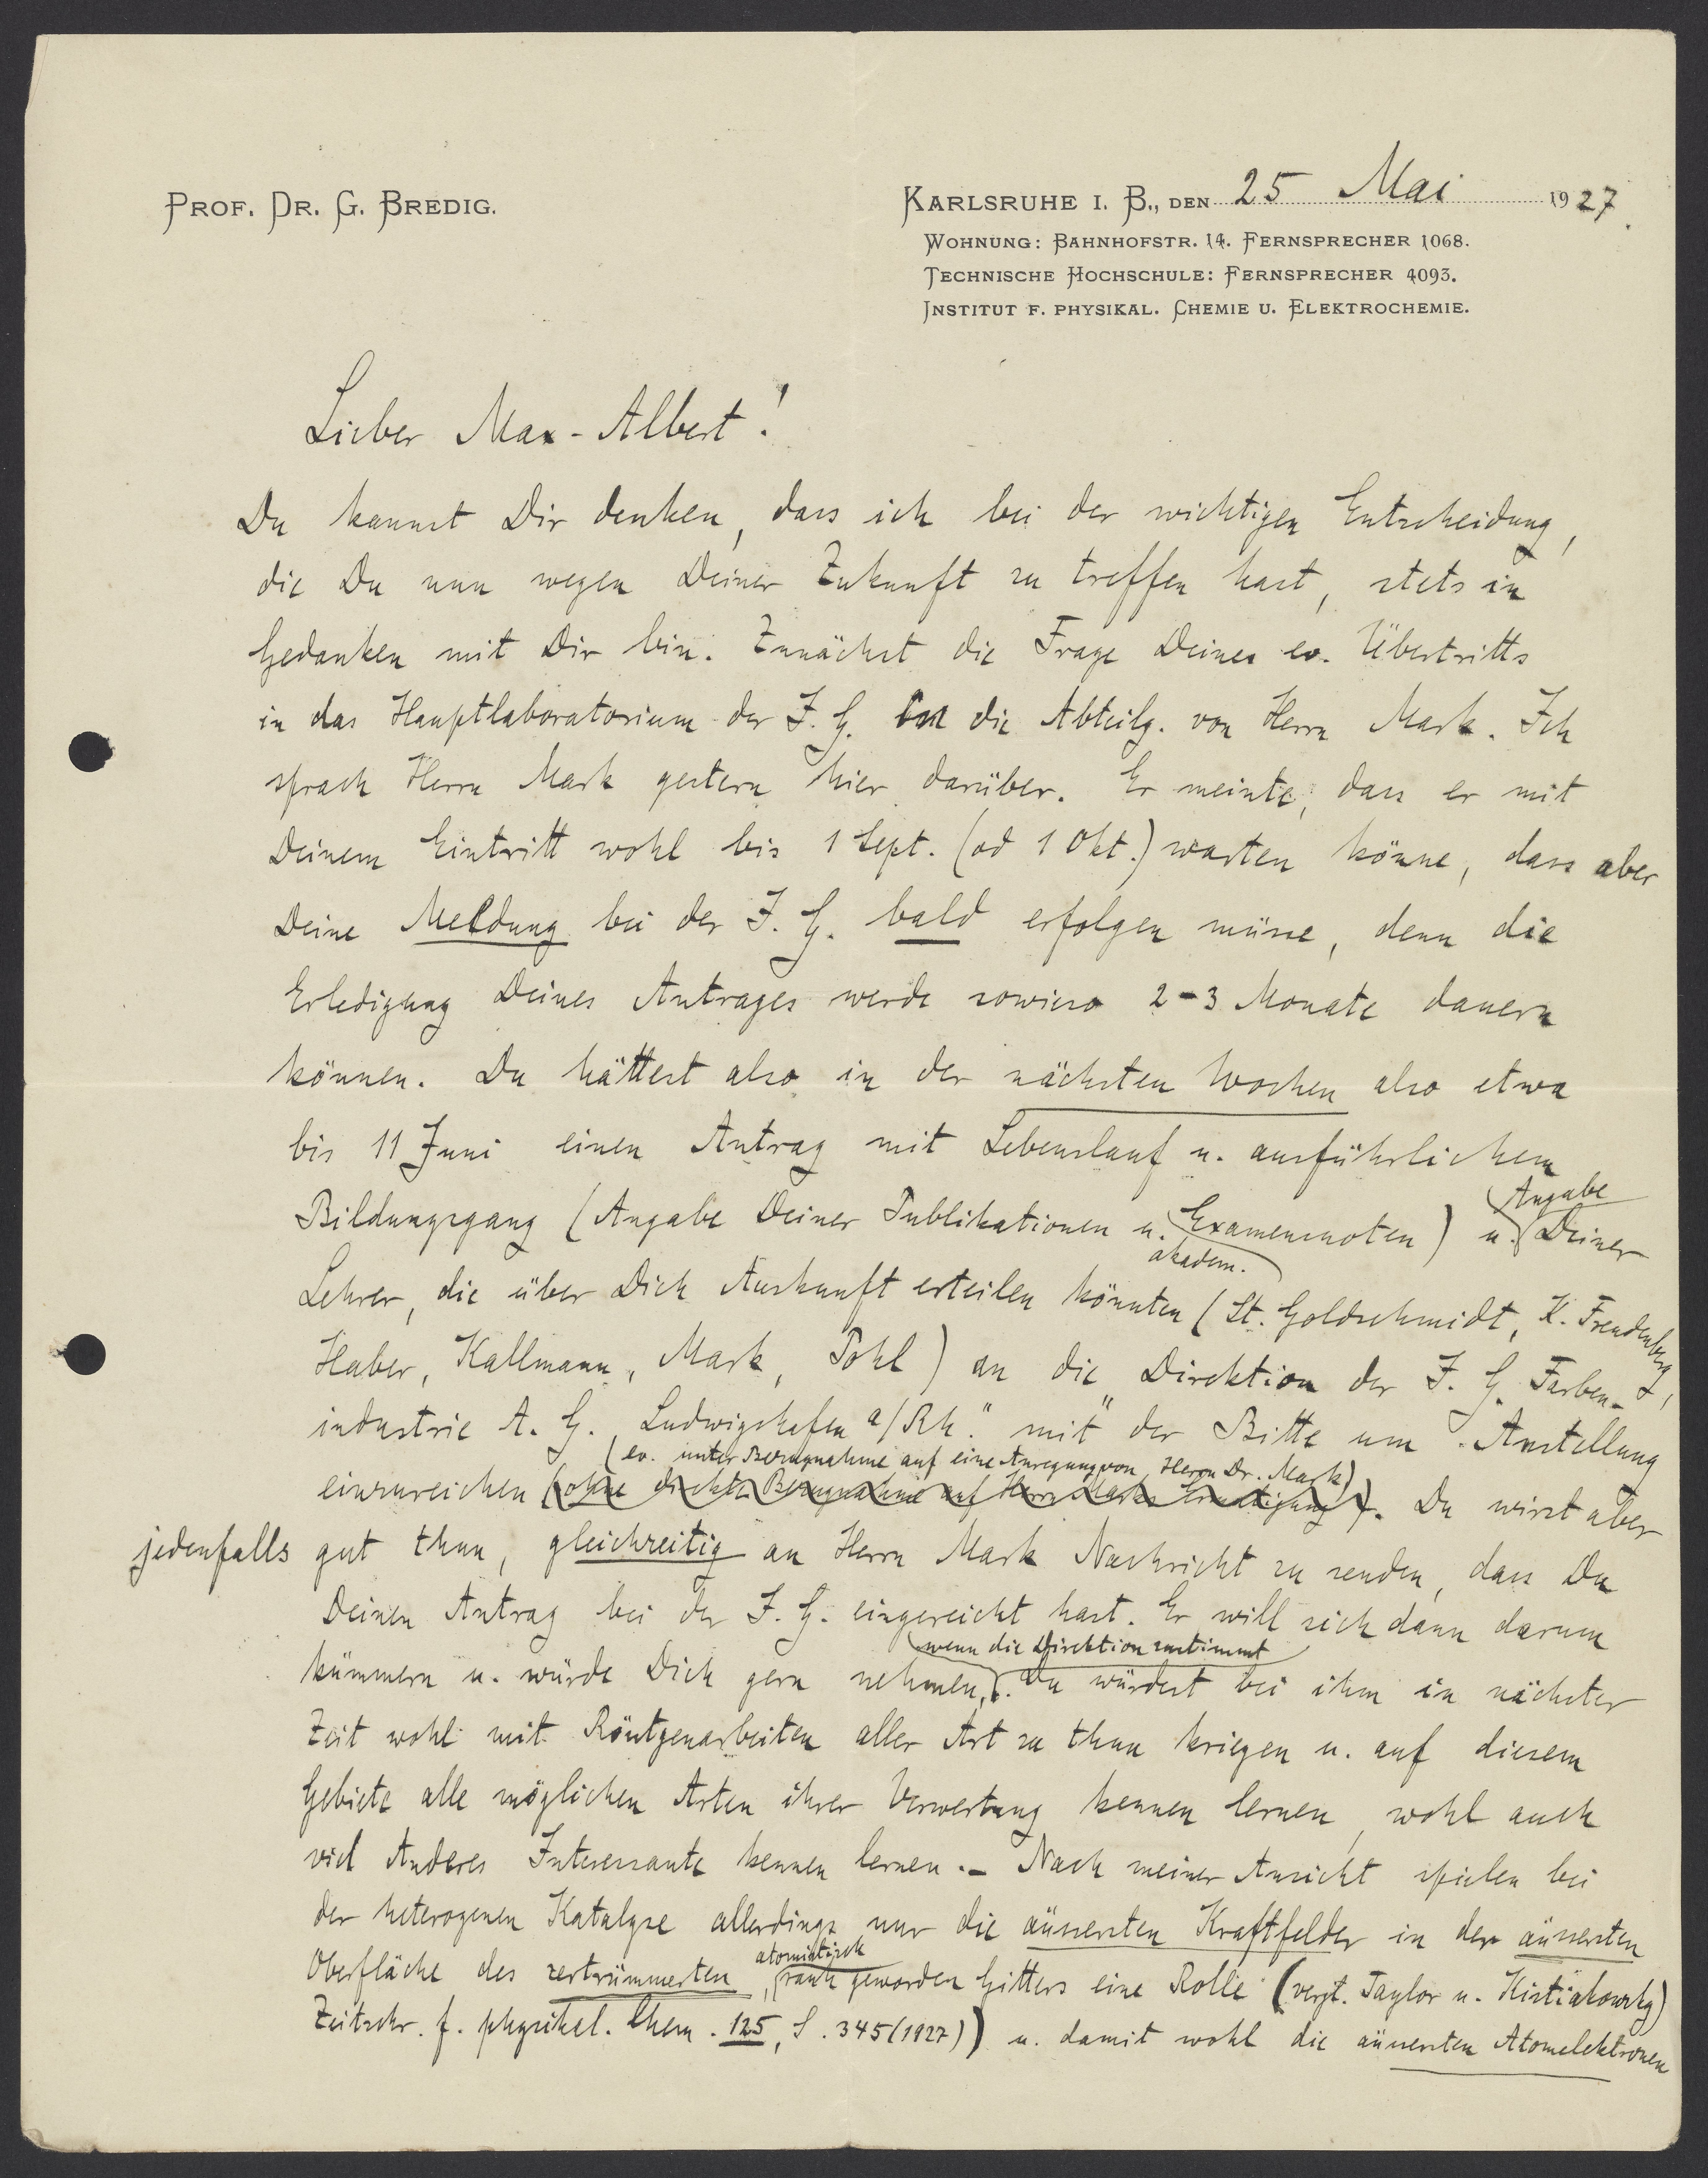 PROF. DR. G. BREDIG.
KARLSRUHE I. B., DEN 25 Mai 1927.
WOHNUNG: BAHNHOFSTR. 14. FERNSPRECHER 1068.
TECHNISCHE HOCHSCHULE: FERNSPRECHER 4093.
INSTITUT F. PHYSIKAL. CHEMIE U. ELEKTROCHEMIE.
Lieber Max-Albert!
Du kannst Dir denken, dass ich bei der wichtigen Entscheidung,
die Du nun wegen Deiner Zukunft zu treffen hast, stets in
Gedanken mit Dir bin. Zunächst die Frage Deines ev. Übertritts
in das Hauptlaboratorium der I. G. in die Abteilg. von Herrn Mark. Ich
sprach Herrn Mark gestern hier darüber. Er meinte, dass er mit
Deinem Eintritt wohl bis 1 Sept. (od 1 Okt.) warten könne, dass aber
Deine Meldung bei der I. G. bald erfolgen müsse, denn die
Erledigung Deines Antrages werde sowieso 2-3 Monate dauern
können. Du hättest also in der nächsten Wochen also etwa
bis 11 Juni einen Antrag mit Lebenslauf u. ausführlichem
Bildungsgang (Angabe Deiner Publikationen u. akadem. Examensnoten) u. Angabe Deiner
Lehrer, die über Dich Auskunft erteilen könnten (St. Goldschmidt, K. Freudenberg,
Haber, Kallmann, Mark, Pohl) an die "Direktion der I. G. Farben-
industrie A. G. Ludwigshafen a/Rh." mit der Bitte um Anstellung
(ev. unter Bezugnahme auf eine Anregung von Herrn Dr. Mark)
einzureichen (ohne direkte Bezugnahme auf Herrn Marks Ermutigung). Du wirst aber
jedenfalls gut thun, gleichzeitig an Herrn Mark Nachricht zu senden, dass Du
Deinen Antrag bei der I. G. eingereicht hast. Er will sich dann darum
kümmern u. würde Dich gern nehmen, wenn die Direktion zustimmt. Du würdest bei ihm in nächster
Zeit wohl mit Röntgenarbeiten aller Art zu thun kriegen u. auf diesem
Gebiete alle möglichen Arten ihrer Verwertung kennen lernen, wohl auch
viel Anderes Interessante kennen lernen. - Nach meiner Ansicht spielen bei
der heterogenen Katalyse allerdings nur die äussersten Kraftfelder in der äussersten
Oberfläche des zertrümmerten, atomistisch rauh geworden Gitters eine Rolle (vergl. Taylor u. Kistiakowsky)
Zeitschr. f. physikal. Chem. 125, S. 345 (1927)) u. damit wohl die äussersten Atomelektronen